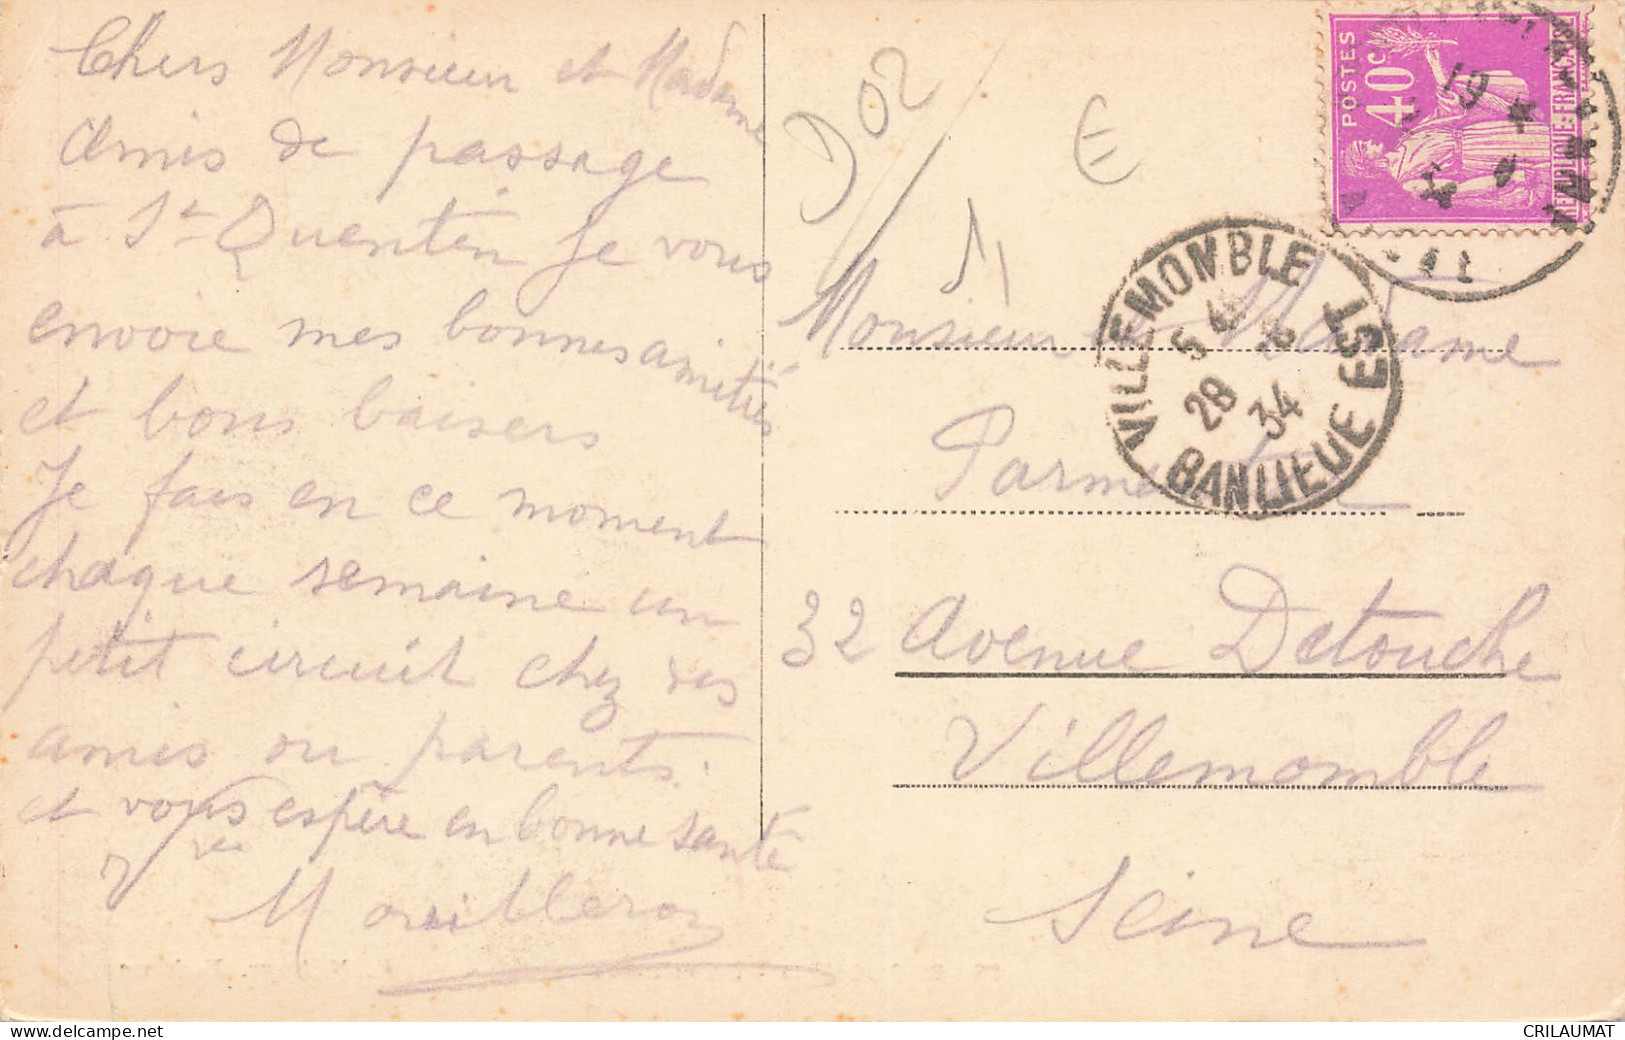 Chers Monsieur et Madame
Amis de passage
à St Quentin Je vous
envoie mes bonnes amitiés
et bons baisers
Je fais en ce moment
chaque semaine un
petit circuit chez des
amis ou parents.
et vous espère en bonne santé
D 02
E
Monsieur et Madame
Parment
32 Avenue Detouche
Villemomble
Seine
POSTES
40 C
REPUBLIQUE FRANCAISE
19
VILLEMOMBLE
28
34
BANLIEUE EST
delcampe.net
CRILAUMAT